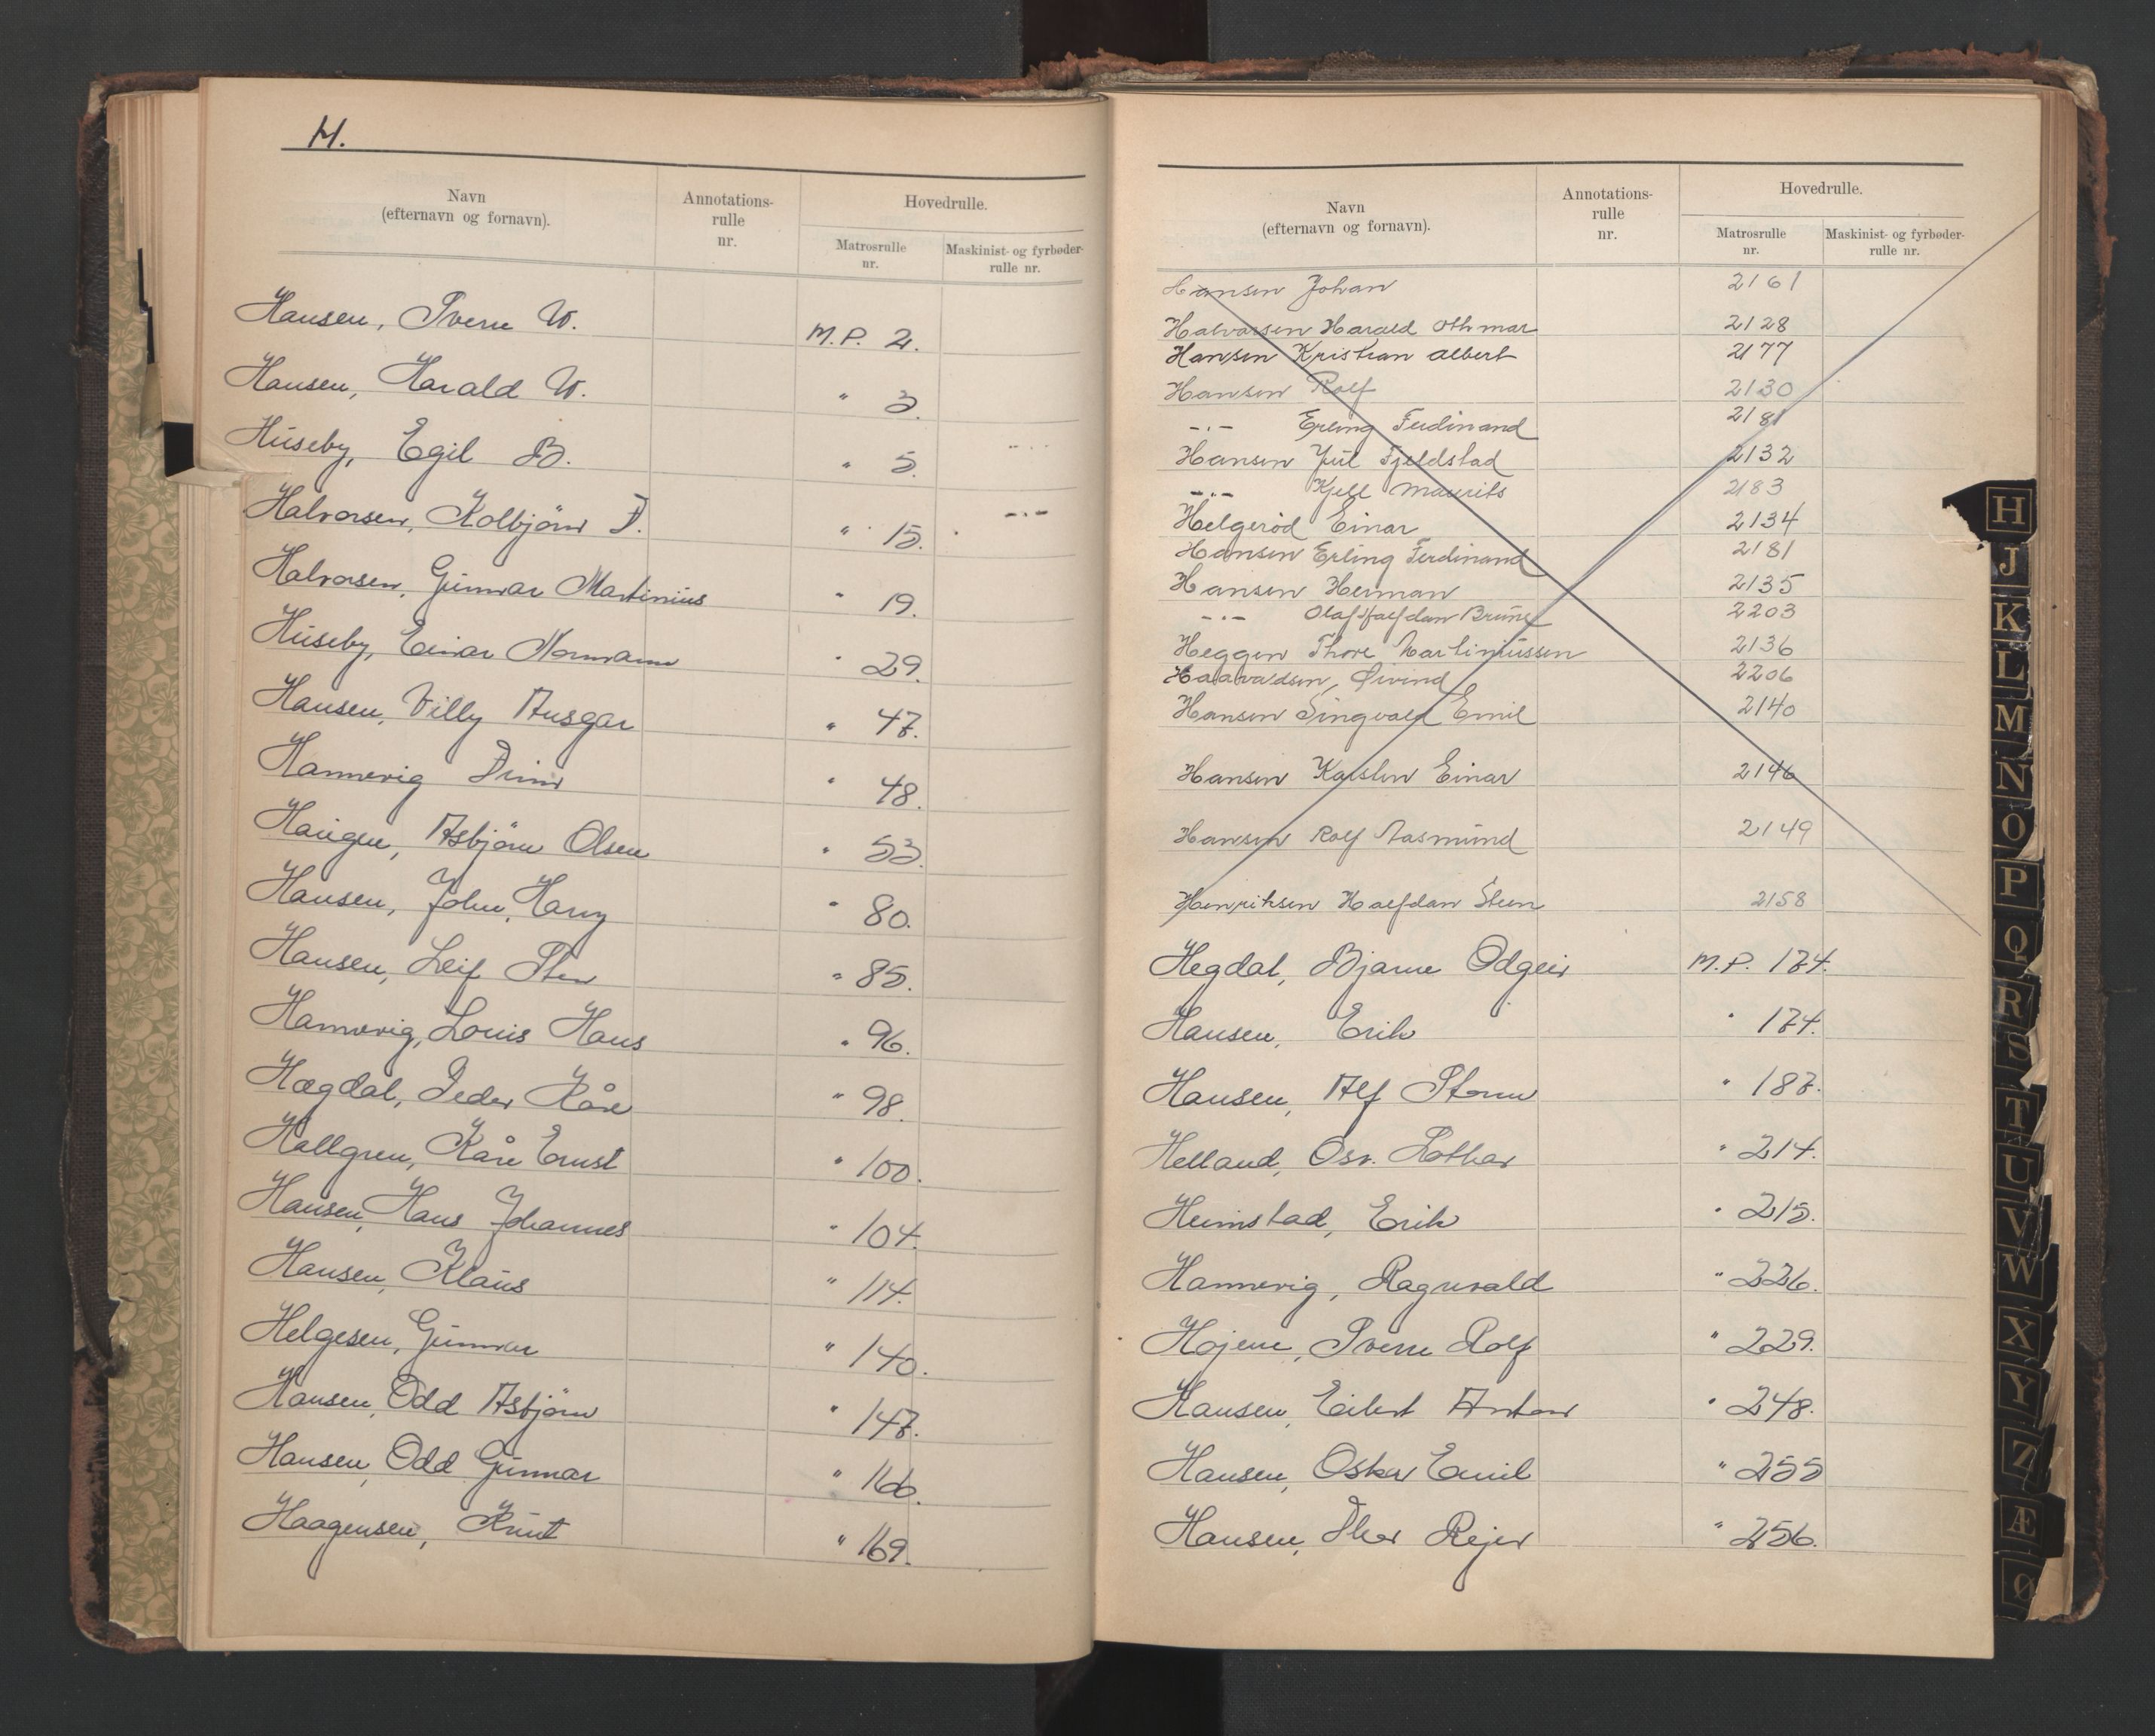 H.
Navn
(efternavn og fornavn).
Annotations-
rulle
nr.
Hovedrulle.
Matrosrulle
nr.
Maskinist- og fyrbøder-
rulle nr.
Hansen, Sverre W. M.P. 2.
Hansen, Harald W. " 3.
Huseby, Egil B. " 5.
Halvorsen, Kolbjörn F. " 15.
Halvorsen, Gunnar Martinius " 19.
Huseby, Einar Normann " 29.
Hansen, Villy Ansgar " 47.
Hannevig Finn " 48.
Haugen, Asbjörn Olsen " 53.
Hansen, John, Harry " 80.
Hansen, Leif Sten " 85.
Hannevig, Louis Hans " 96.
Hægdal, Peder Kåre " 98.
Hallgren, Kåre Ernst " 100.
Hansen, Hans Johannes " 104.
Hansen, Klaus " 114.
Helgesen, Gunnar " 140.
Hansen, Odd Asbjörn " 147.
Hansen, Odd Gunnar " 166.
Haagensen, Knut " 169.
Navn
(efternavn og fornavn).
Annotations-
rulle
nr.
Hovedrulle.
Matrosrulle
nr.
Maskinist- og fyrbøder-
rulle nr.
Hansen Johan 2161
Halvorsen Harald Othmar 2128
Hansen Kristian Albert 2177
Hansen Rolf 2130
-"- Erling Ferdinand 2181
Hansen Jul Fjeldstad 2132
-"- Kjell Maurits 2183
Helgerød Einar 2134
Hansen Erling Ferdinand 2181
Hansen Herman 2135
-"- Olaf Halfdan Brune 2203
Heggen Thore Martiniussen 2136
Haavaldsen, Øivind 2206
Hansen Singvald Emil 2140
Hansen Karsten Einar 2146
Hansen Rolf Aasmund 2149
Henriksen Halfdan Steen 2158
Hegdal, Bjarne Odgeir M.P. 174.
Hansen, Erik " 174.
Hansen, Alf Storm " 187.
Helland, Osv. Lothar " 214.
Heimstad, Erik " 215.
Hannevig, Ragnvald " 226.
Højene, Sverre Rolf " 229.
Hansen, Eilert Anton " 248.
Hansen, Oskar Emil " 255
Hansen, Thor Rejer " 256.
H
J
K
L
M
N
O
P
Q
R
S
T
U
V
W
X
Y
Z
Æ
Ø